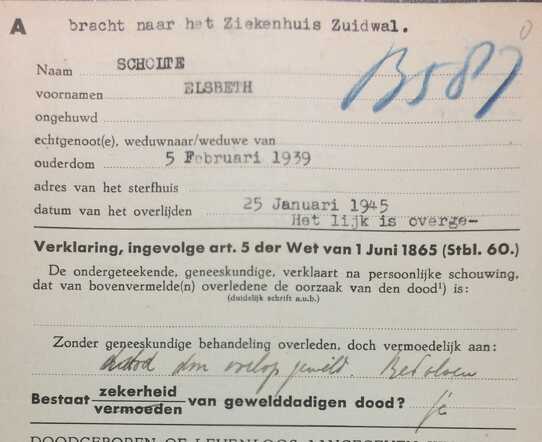 A bracht naar het Ziekenhuis Zuidwal.
B587
Naam SCHOLTE
voornamen ELSBETH
ongehuwd
echtgenoot(e), weduwnaar/weduwe van
ouderdom 5 Februari 1939
adres van het sterfhuis
datum van het overlijden 25 Januari 1945
Het lijk is overge-
Verklaring, ingevolge art. 5 der Wet van 1 Juni 1865 (Stbl. 60.)
De ondergeteekende, geneeskundige, verklaart na persoonlijke schouwing,
dat van bovenvermelde(n) overledene de oorzaak van den dood¹) is:
(duidelijk schrift a.u.b.)
Zonder geneeskundige behandeling overleden, doch vermoedelijk aan:
dood
Bestaat zekerheid
vermoeden van gewelddadigen dood? je
DOODGEBOREN OF LEVENLOOS AANGEGEVEN